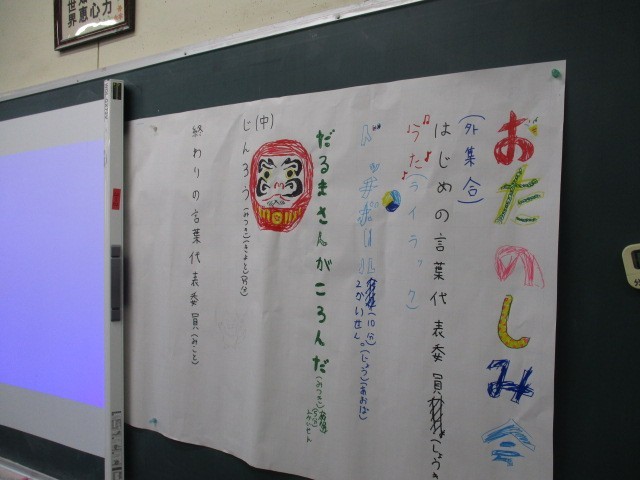 おたのしみ会
(外集合)
はじめの言葉代表委員(しょうき
うた(ライラック)
ドッヂボール(10分)(じょう)(あおば)
2かいせん。
だるまさんがころんだ(みつき)
(中)
じんろう(みつき)(きよと)
終わりの言葉代表委員(みこと)
世界
恵心力